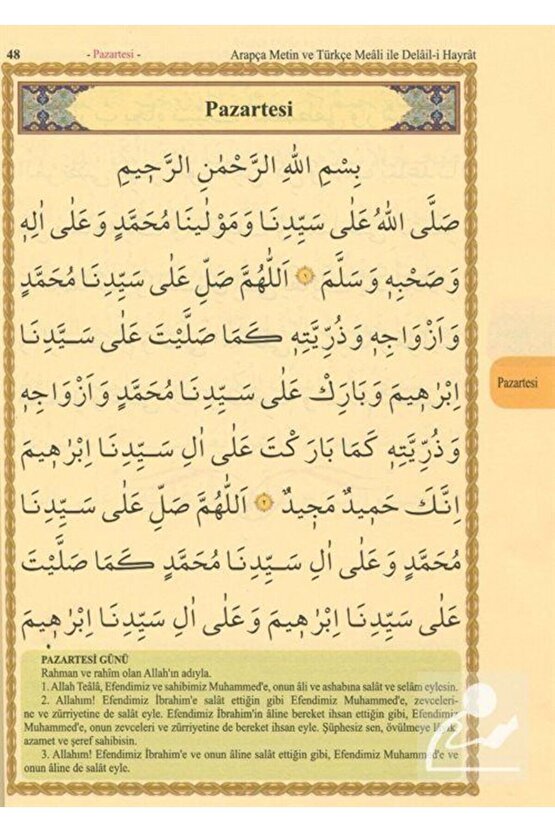 48 - Pazartesi - Arapça Metin ve Türkçe Meâli ile Delâil-i Hayrât
Pazartesi
بِسْمِ اللهِ الرَّحْمٰنِ الرَّح۪يمِ
صَلَّى اللهُ عَلٰى سَيِّدِنَا وَمَوْلٰينَا مُحَمَّدٍ وَعَلٰى اٰلِه۪
وَصَحْبِه۪ وَسَلَّمَ ١ اَللّٰهُمَّ صَلِّ عَلٰى سَيِّدِنَا مُحَمَّدٍ
وَاَزْوَاجِه۪ وَذُرِّيَّتِه۪ كَمَا صَلَّيْتَ عَلٰى سَيِّدِنَا
اِبْرٰه۪يمَ وَبَارِكْ عَلٰى سَيِّدِنَا مُحَمَّدٍ وَاَزْوَاجِه۪
وَذُرِّيَّتِه۪ كَمَا بَارَكْتَ عَلٰى اٰلِ سَيِّدِنَا اِبْرٰه۪يمَ
اِنَّكَ حَم۪يدٌ مَج۪يدٌ ٢ اَللّٰهُمَّ صَلِّ عَلٰى سَيِّدِنَا
مُحَمَّدٍ وَعَلٰى اٰلِ سَيِّدِنَا مُحَمَّدٍ كَمَا صَلَّيْتَ
عَلٰى سَيِّدِنَا اِبْرٰه۪يمَ وَعَلٰى اٰلِ سَيِّدِنَا اِبْرٰه۪يمَ
Pazartesi
PAZARTESİ GÜNÜ
Rahman ve rahîm olan Allah'ın adıyla.
1. Allah Teâlâ, Efendimiz ve sahibimiz Muhammed'e, onun âli ve ashabına salât ve selâm eylesin.
2. Allahım! Efendimiz İbrahim'e salât ettiğin gibi Efendimiz Muhammed'e, zevceleri-
ne ve zürriyetine de salât eyle. Efendimiz İbrahim'in âline bereket ihsan ettiğin gibi, Efendimiz
Muhammed'e, onun zevceleri ve zürriyetine de bereket ihsan eyle. Şüphesiz sen, övülmeye lâyık,
azamet ve şeref sahibisin.
3. Allahım! Efendimiz İbrahim'e ve onun âline salât ettiğin gibi, Efendimiz Muhammed'e ve
onun âline de salât eyle.